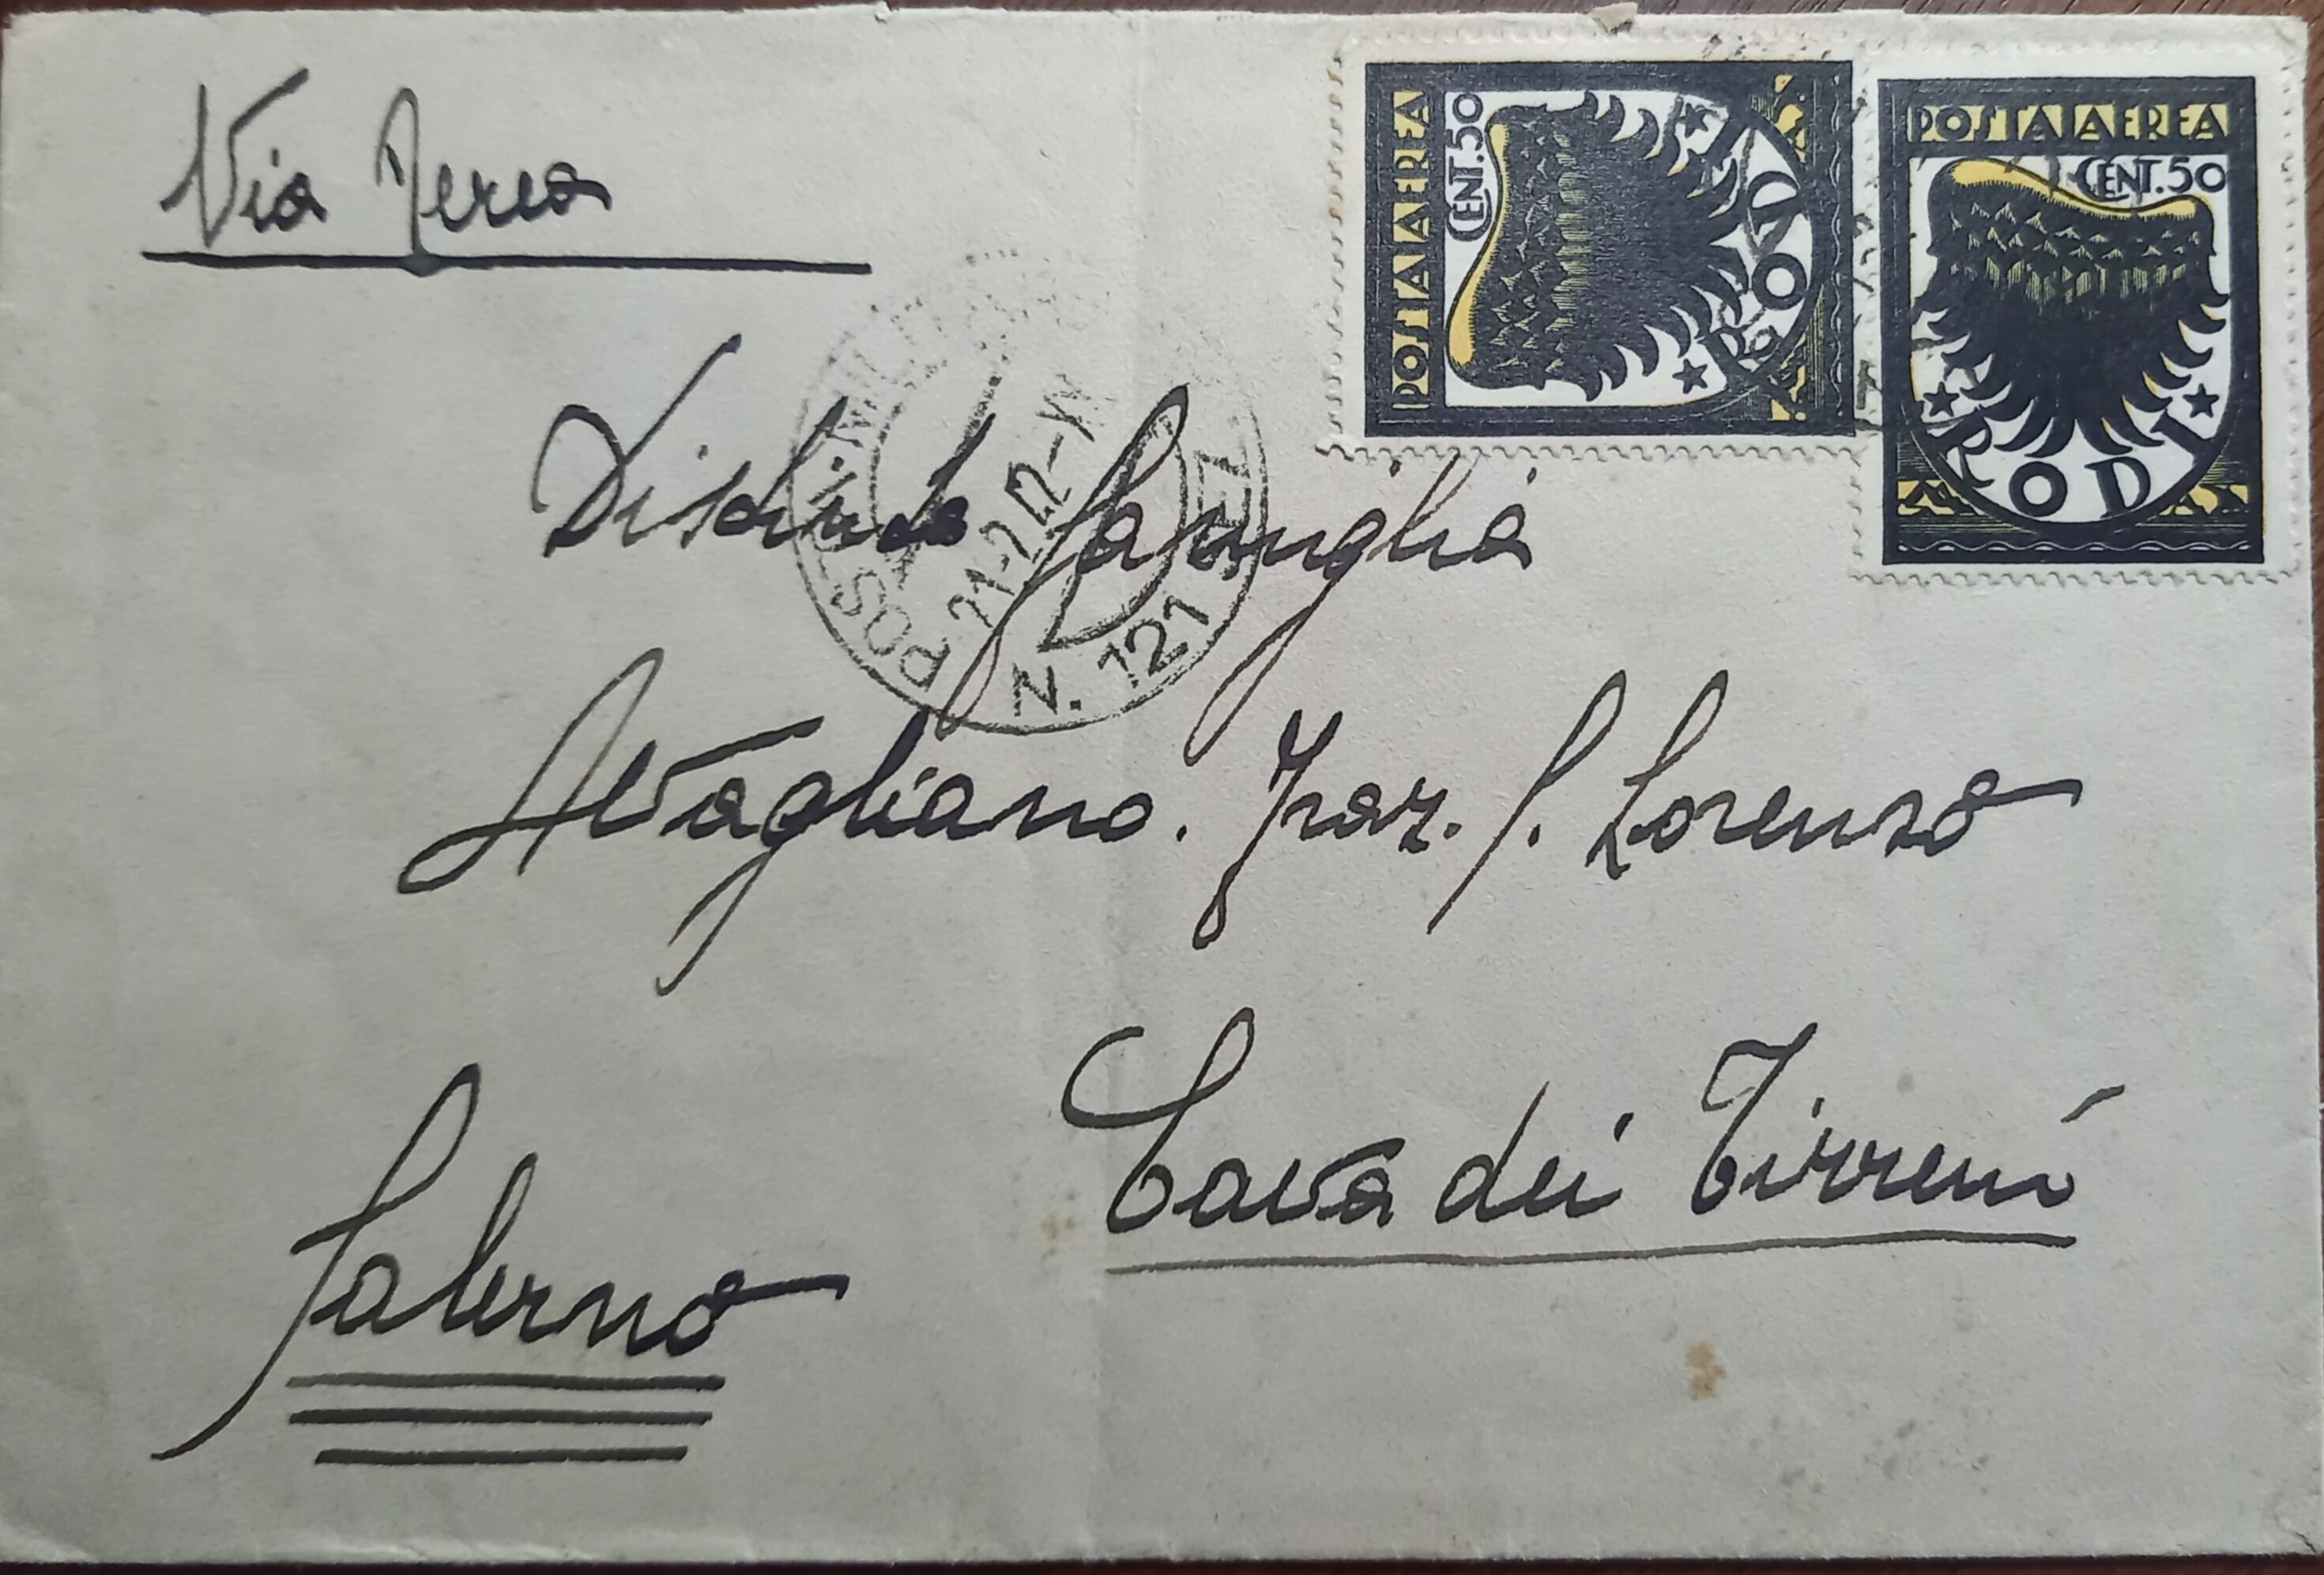 Via Aerea
POSTA AEREA
CENT.50
RODI
POSTA AEREA
CENT.50
RODI
Distinta famiglia
POSTA MILITARE
N. 121
Avagliano. Fraz. S. Lorenzo
Cava dei Tirreni
Salerno